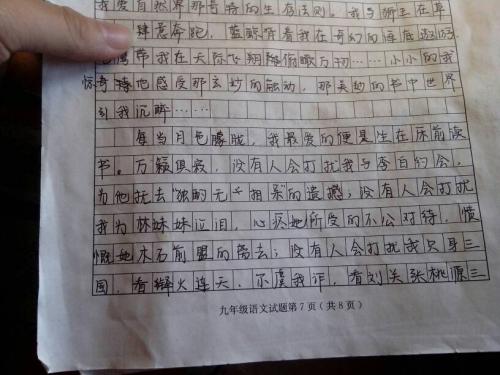 我爱自然界那奇特的生存法则。我与狮王在草
肆意奔跑，蓝鲸带着我在奇幻的海底
带我在天际飞翔俯瞰万物……小小的我
惊奇地感受那玄妙的触动，那美妙的书中世界
引我沉醉……
每当月色朦胧，我最爱的便是坐在床前读
书。万籁俱寂，没有人会打扰我与李白约会，
为他抚去“独酌无相亲”的遗憾；没有人会打扰
我为林妹妹泣泪，心疼她所受的不公对待，愤
慨她木石前盟的失去；没有人会打扰我只身三
国，看烽火连天，尔虞我诈，看刘关张桃源三
九年级语文试题第7页（共8页）